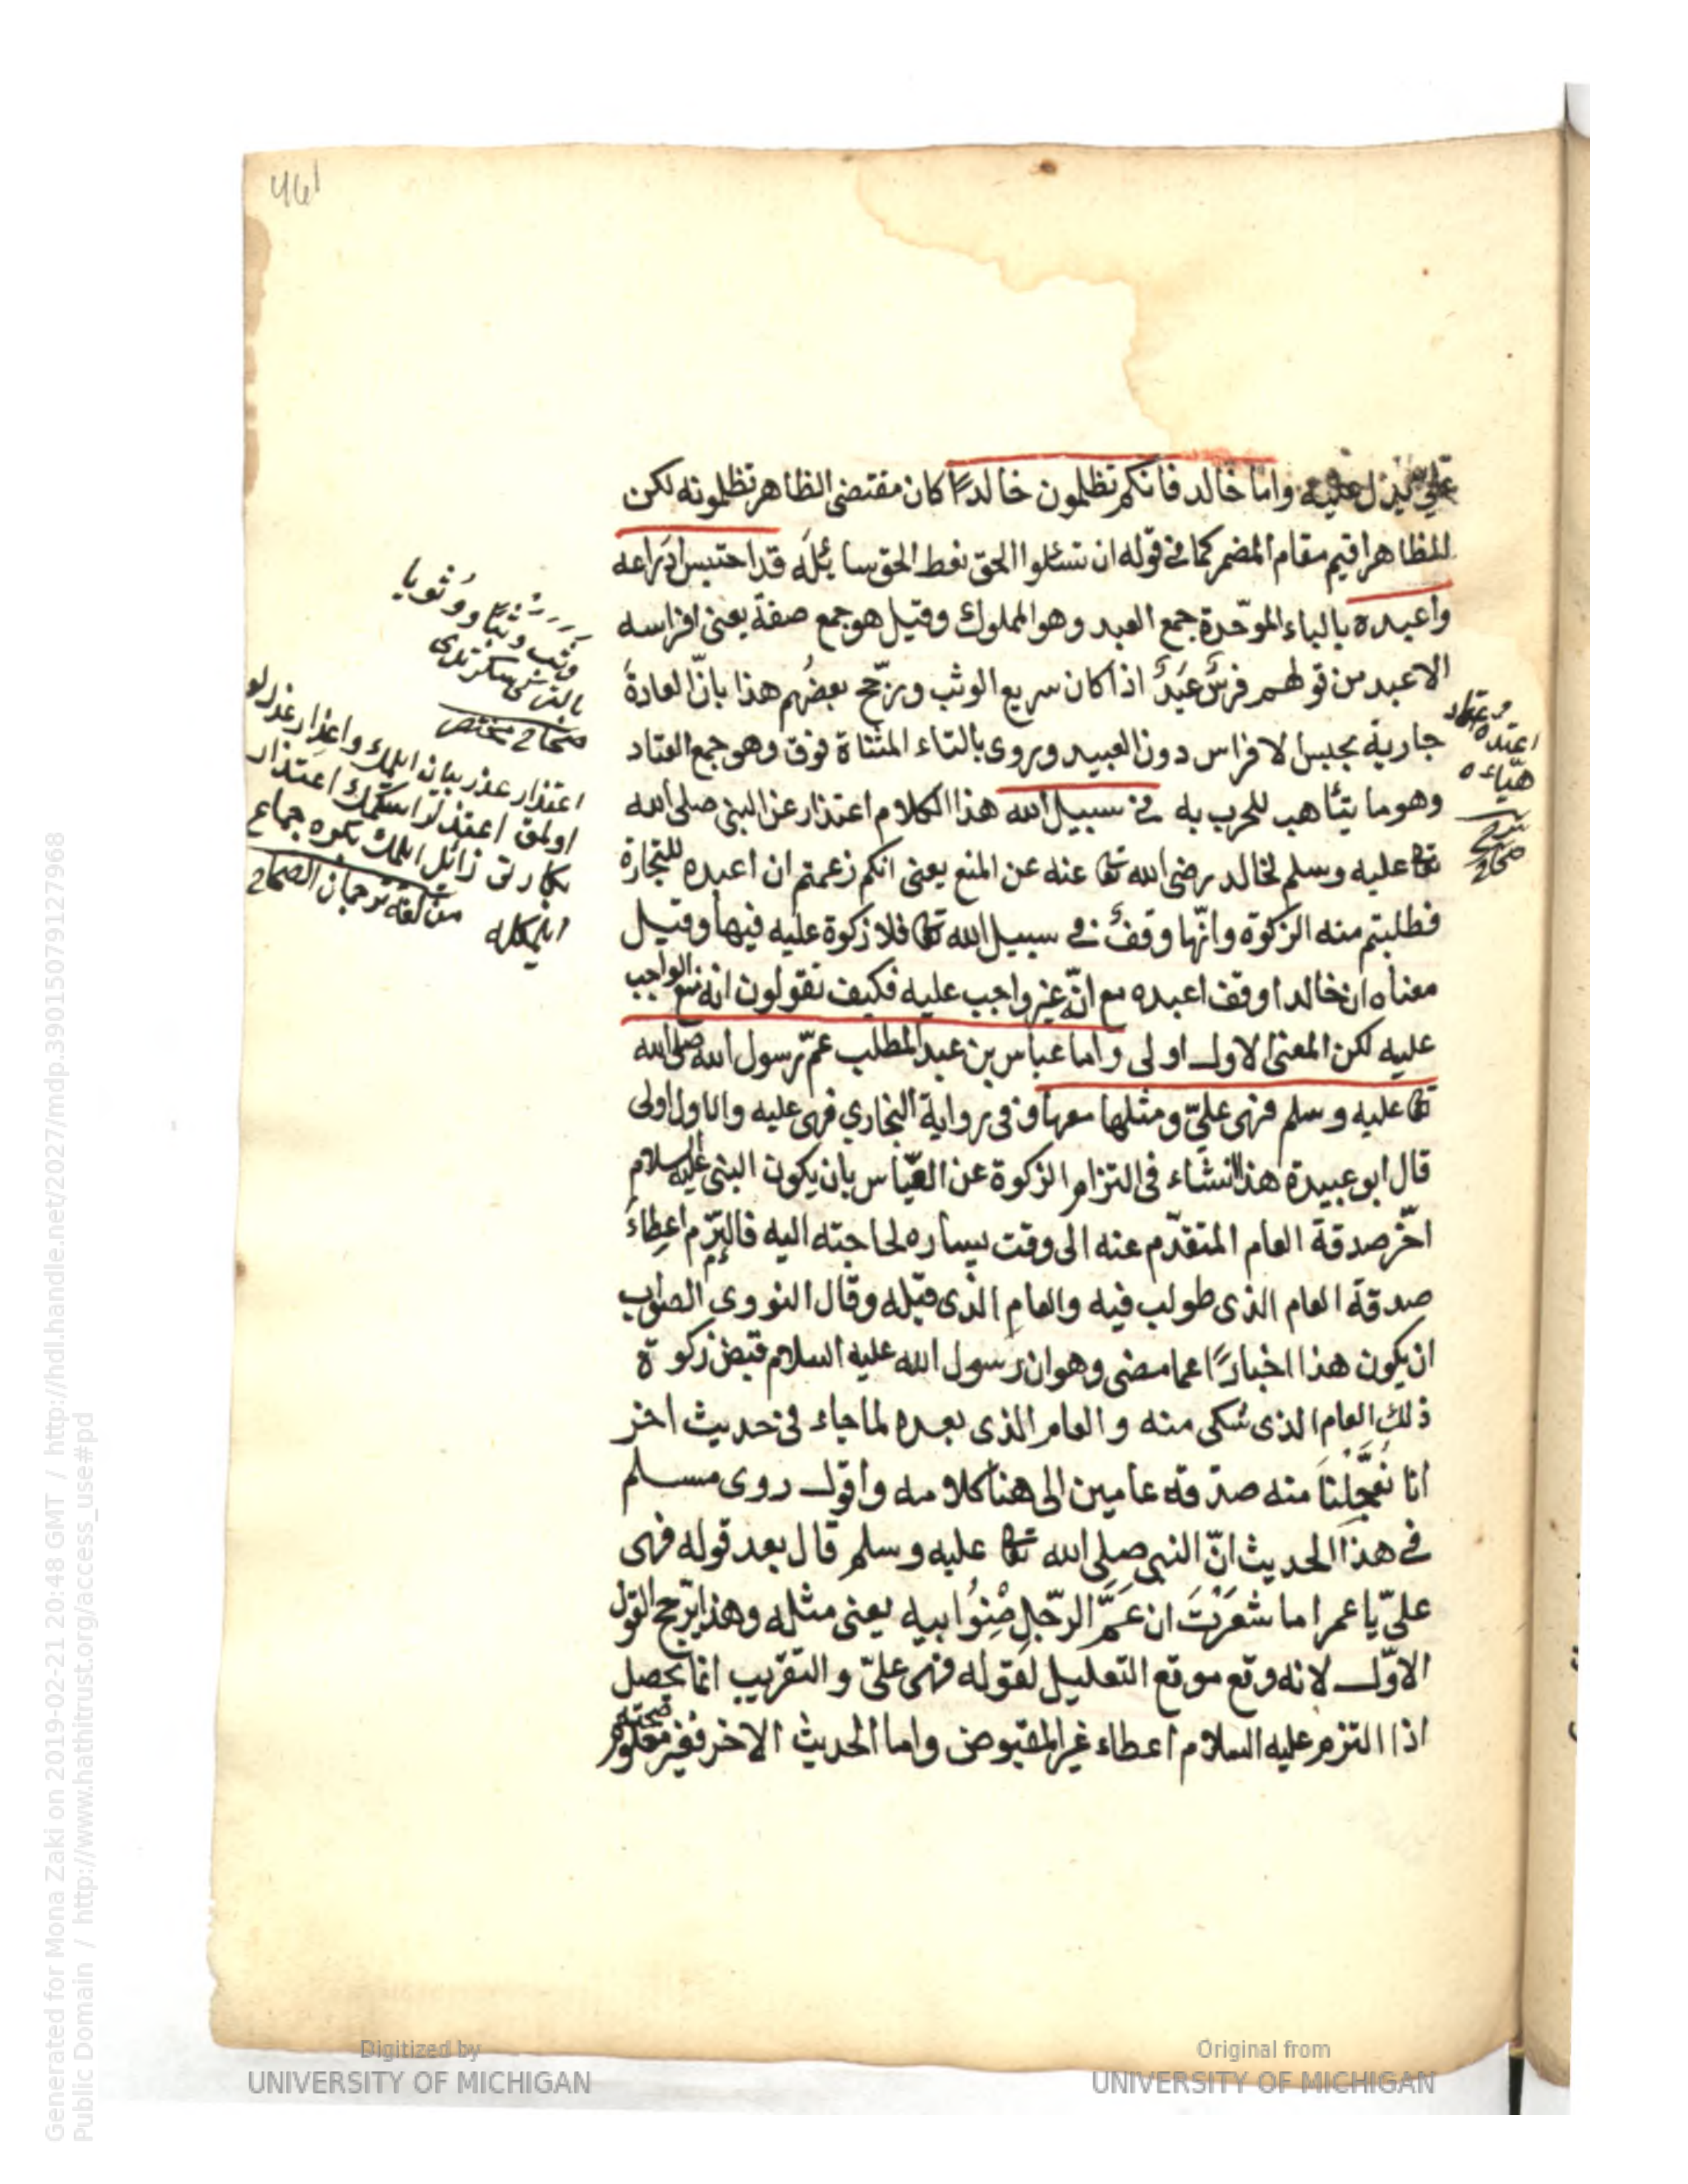 461
ينزل عليه واما خالد فانكم تظلمون خالدًا كان مقتضى الظاهر تظلمونه لكن
المظاهر اقيم مقام المضمر كما في قوله ان تسئلوا الحق نعط الحق سائله قد احتبس ادراعه
واعبده بالباء الموحّدة جمع العبد وهو المملوك وقيل هو جمع صفة يعنى افراسه
الاعبد من قولهم فرسٌ عَبَدٌ اذا كان سريع الوثب ورجّح بعضُهم هذا بانّ العادةَ
جارية بحبس الافراس دون العبيد ويروى بالتاء المثناة فوق وهو جمع العتاد
وهو ما يتأهب للحرب به في سبيل الله هذا الكلام اعتذار عن النبي صلى الله
تعا عليه وسلم لخالد رضى الله تعا عنه عن المنع يعنى انكم زعمتم ان اعبده للتجارة
فطلبتم منه الزكوة وانّها وقفٌ في سبيل الله تعا فلا زكوة عليه فيها وقيل
معناه ان خالدا وقف اعبده مع انّه غير واجب عليه فكيف تقولون انه منع الواجب
عليه لكن المعنى الاول اولى واما عباس بن عبد المطلب عمّ رسول الله صلى الله
تعا عليه وسلم فهى عليّ ومثلها معها وفى رواية البخاري فهى عليه والاول اولى
قال ابو عبيدة هذا انشاء فى التزام الزكوة عن العبّاس بان يكون النبى عليه السلام
اخّر صدقة العام المتقدّم عنه الى وقت يساره لحاجته اليه فالتزم اعطاءَ
صدقة العام الذى طولب فيه والعام الذى قبله وقال النووى الصواب
ان يكون هذا اخبارًا عما مضى وهو ان رسول الله عليه السلام قبض زكوة
ذلك العام الذى شكى منه والعام الذى بعده لما جاء فى حديث اخر
انا تعجّلنا منه صدقة عامين الى هنا كلامه واقول روى مسلم
في هذا الحديث انّ النبي صلى الله تعا عليه وسلم قال بعد قوله فهى
عليّ يا عمر اما شَعَرْتَ ان عَمَّ الرّجلِ صِنْوُ ابيه يعنى مثله وهذا يرّجح القول
الاوّل لانه وقع موقع التعليل لقوله فهى علىّ والتقريب انما يحصل
اذا التزم عليه السلام اعطاء غير المقبوض واما الحديث الاخر فغير معلوم
صحته
وثب
بالفتح سكرتدى
صحاح مختصر
اعتذار عذر بيان ايلمك
اولمق اعتذار استمك اعتذار
من لغة ترجمان الصحاح
عتاد
اعتده
هيّاءه
صحاح
Generated for Mona Zaki on 2019-02-21 20:48 GMT / http://hdl.handle.net/2027/mdp.39015079127968
Public Domain / http://www.hathitrust.org/access_use#pd
Digitized by
UNIVERSITY OF MICHIGAN
Original from
UNIVERSITY OF MICHIGAN